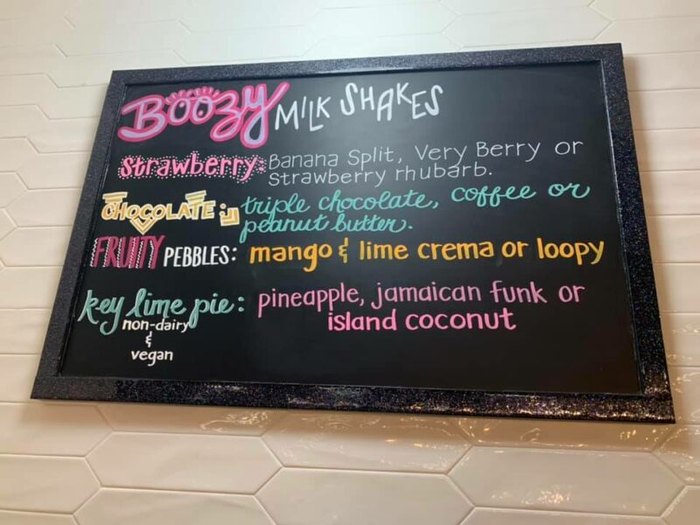 Boozy MILK SHAKES
Strawberry: Banana Split, Very Berry or
Strawberry rhubarb.
CHOCOLATE: triple chocolate, coffee or
peanut butter.
FRUITY PEBBLES: mango & lime crema or loopy
key lime pie: pineapple, jamaican funk or
non-dairy island coconut
&
vegan